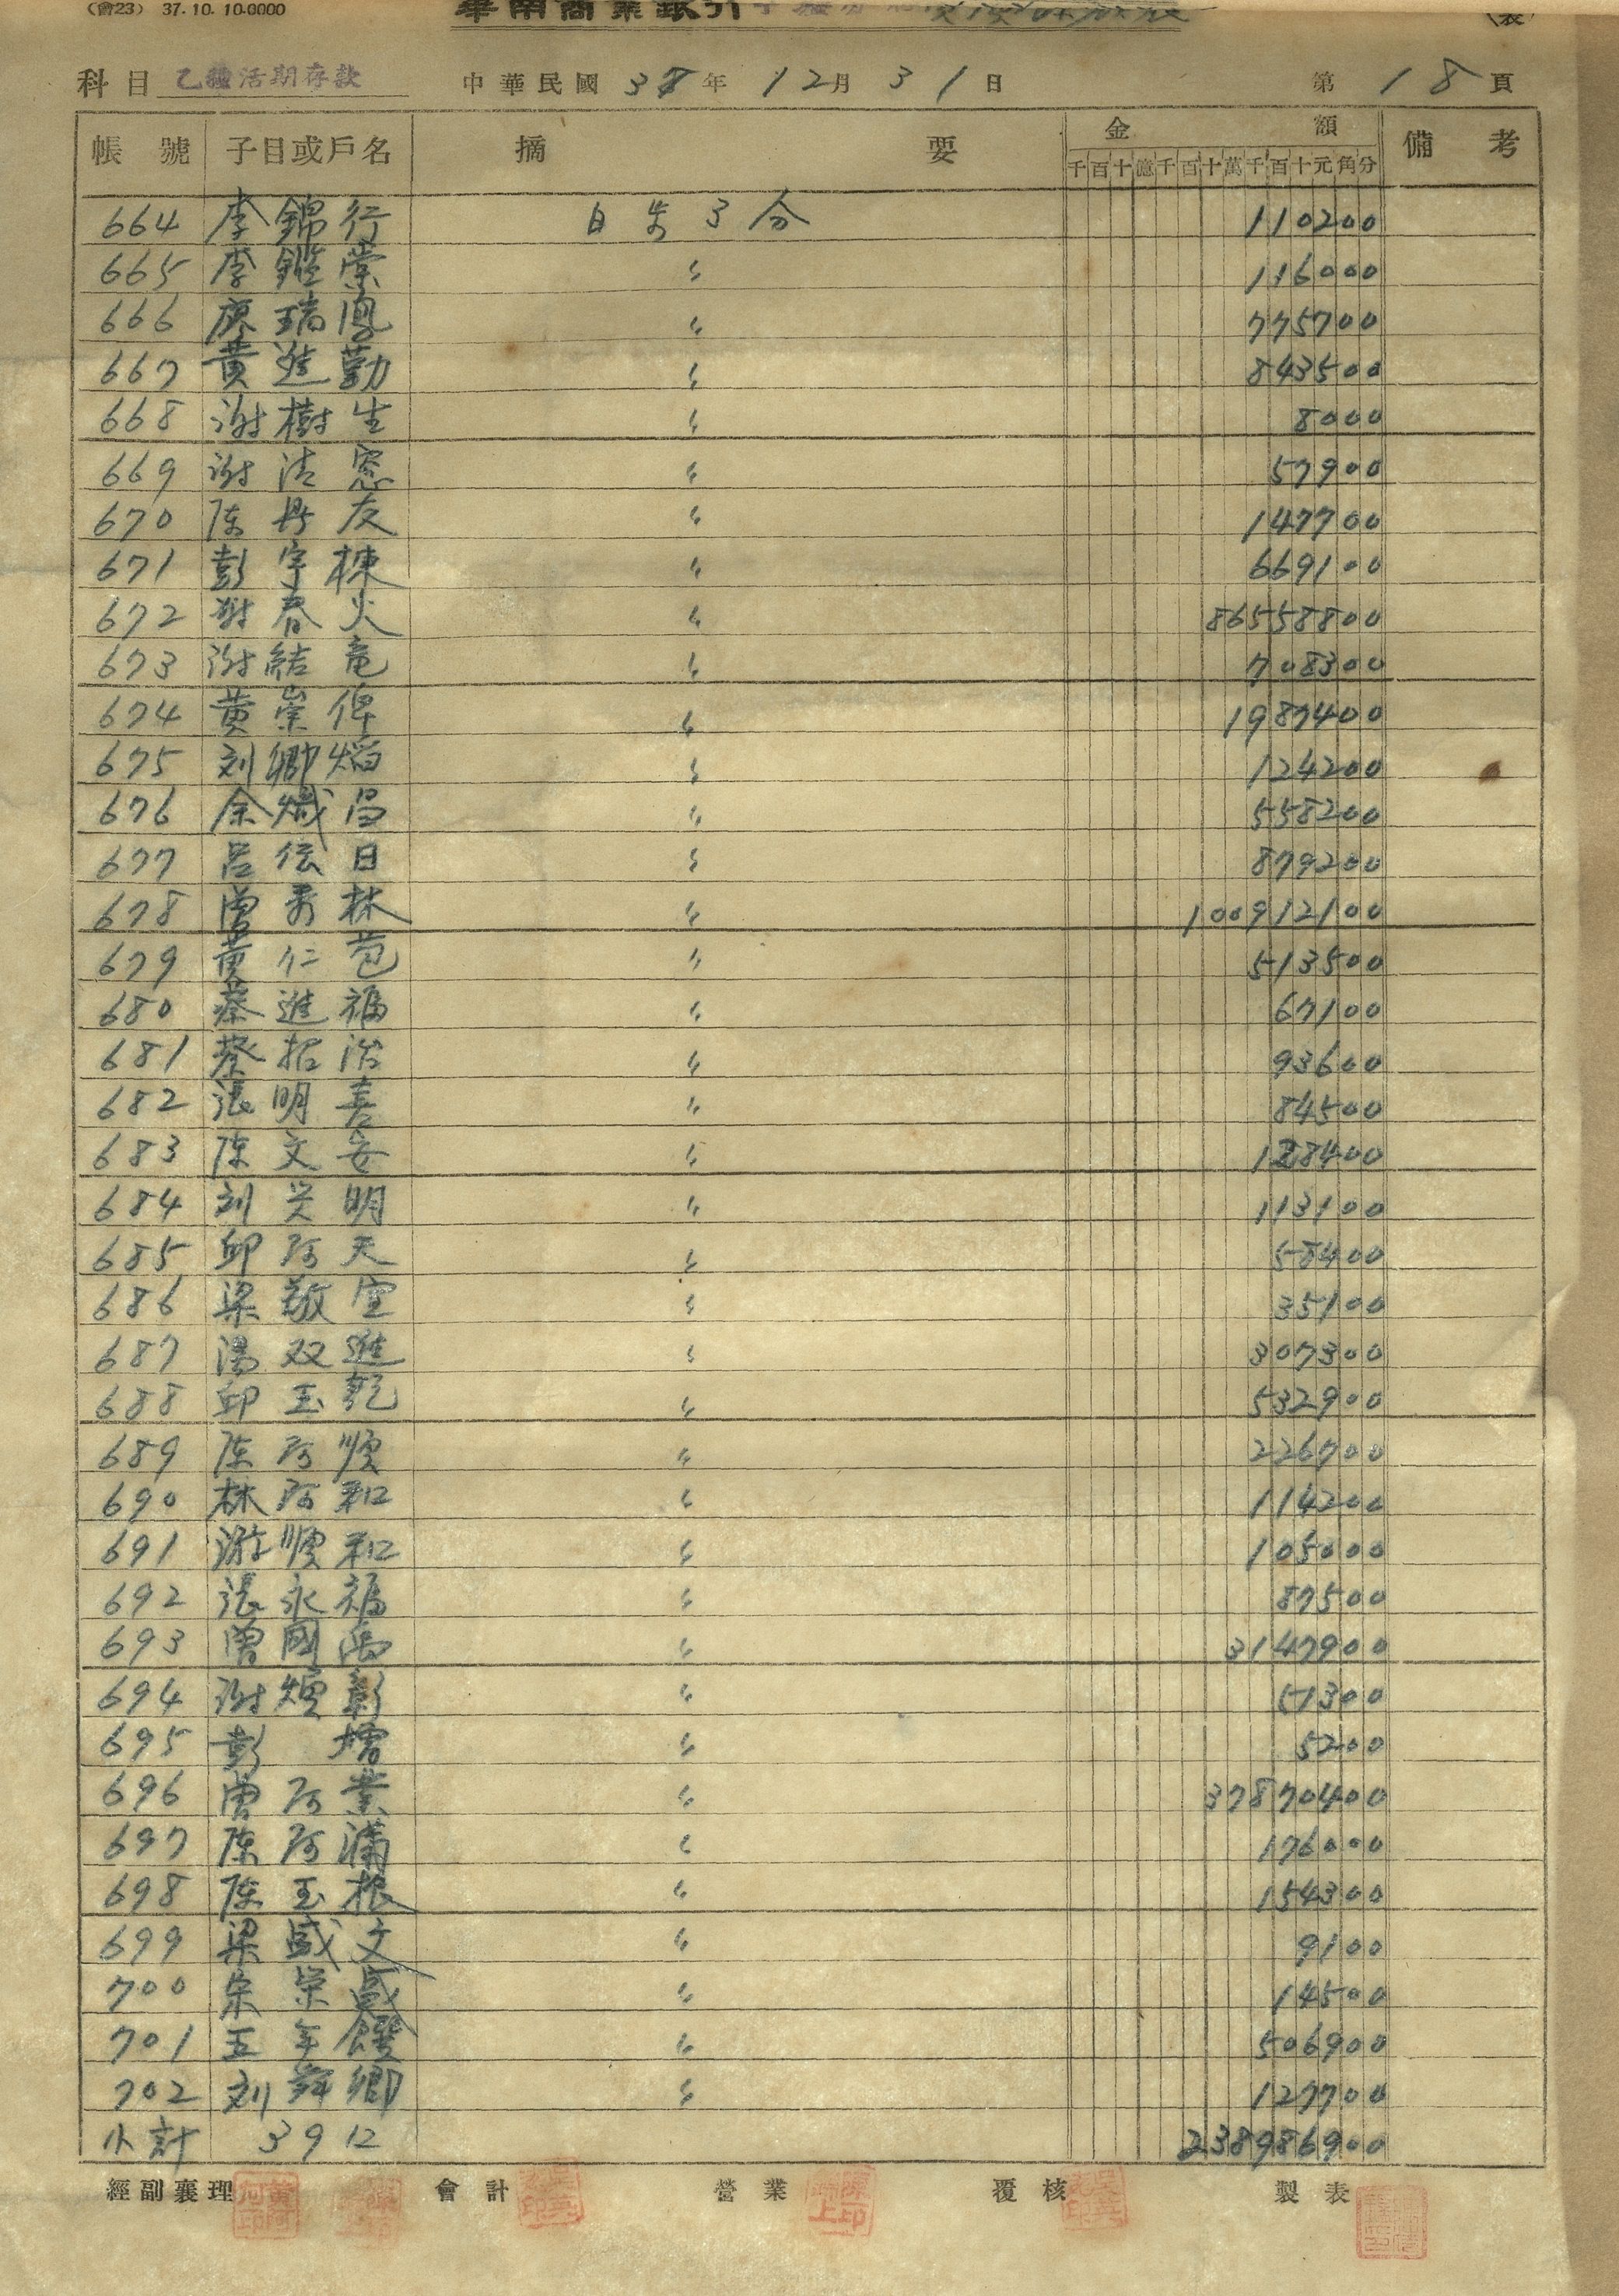 (會23) 37.10.10.0000
華南商業銀行
科目 乙種活期存款 中華民國 37年 12月 31日 第 18 頁
帳號 子目或戶名 摘要 金額 備考
千百十億千百十萬千百十元角分
664 李錦行 日步3分 110200
665 李鑑棠 〃 116000
666 庚瑞鳳 〃 775700
667 黄進勤 〃 843500
668 謝樹生 〃 8000
669 謝清窓 〃 57900
670 陳丹友 〃 147700
671 彭宇棟 〃 669100
672 謝春火 〃 86558800
673 謝結竜 〃 708300
674 黄崇俾 〃 1987400
675 刘卿焰 〃 124200
676 余熾昌 〃 558200
677 呂伝日 〃 879200
678 曽秀林 〃 100912100
679 黄仁苞 〃 513500
680 蔡進福 〃 67100
681 蔡招治 〃 93600
682 張明喜 〃 84500
683 陳文安 〃 128400
684 刘兴明 〃 113100
685 邱阿天 〃 58400
686 梁敬宝 〃 35100
687 湯双進 〃 307300
688 邱玉乾 〃 532900
689 陳阿順 〃 226700
690 林阿和 〃 114200
691 游順和 〃 105000
692 張永福 〃 87500
693 曽國 〃 3147900
694 謝煥彰 〃 51300
695 彭 增 〃 5200
696 曽阿業 〃 37870400
697 陳阿滿 〃 176000
698 陳玉根 〃 154300
699 梁盛文 〃 9100
700 宋栄盛 〃 14500
701 五年 〃 506900
702 刘舜卿 〃 127700
小計 39口 238986900
經副襄理 會計 營業 覆核 製表